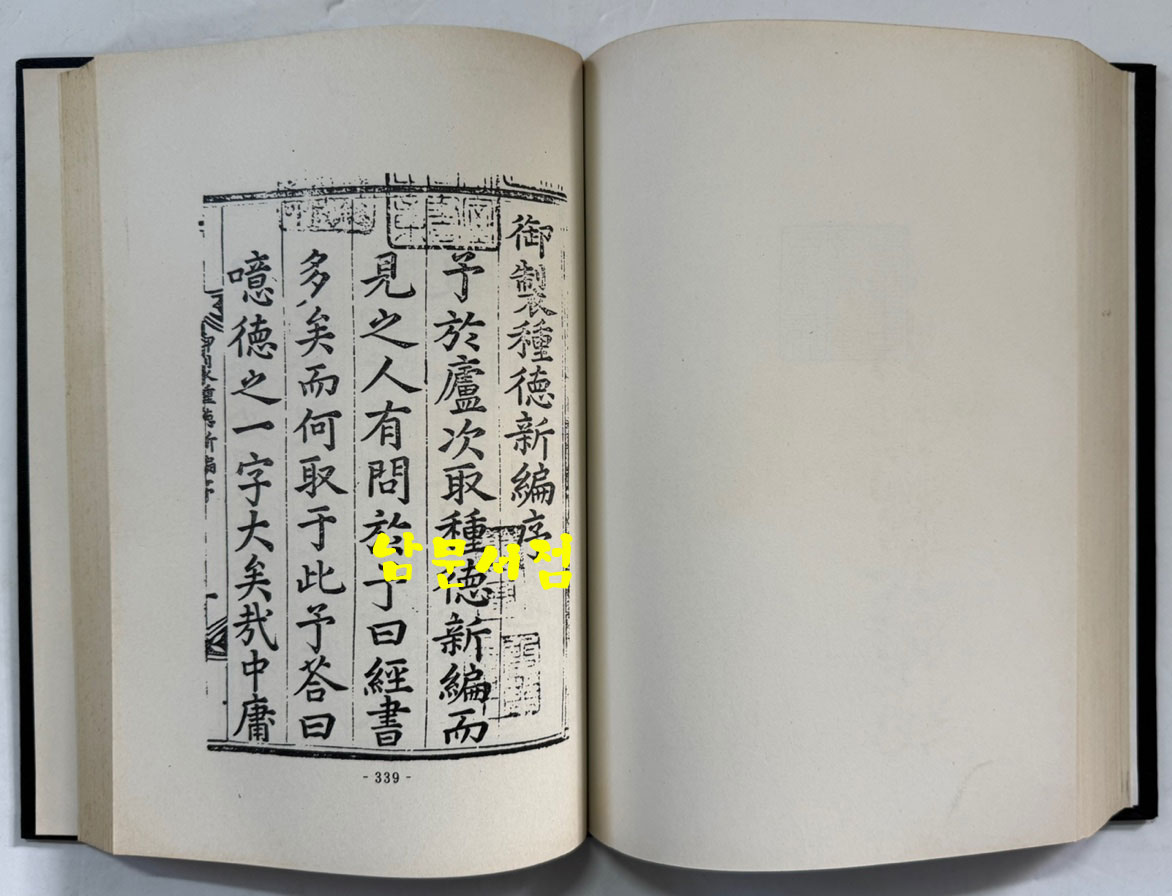 御製種德新編序
予於廬次取種德新編而
見之人有問於予曰經書
多矣而何取于此予答曰
噫德之一字大矣哉中庸
남문서점
- 339 -